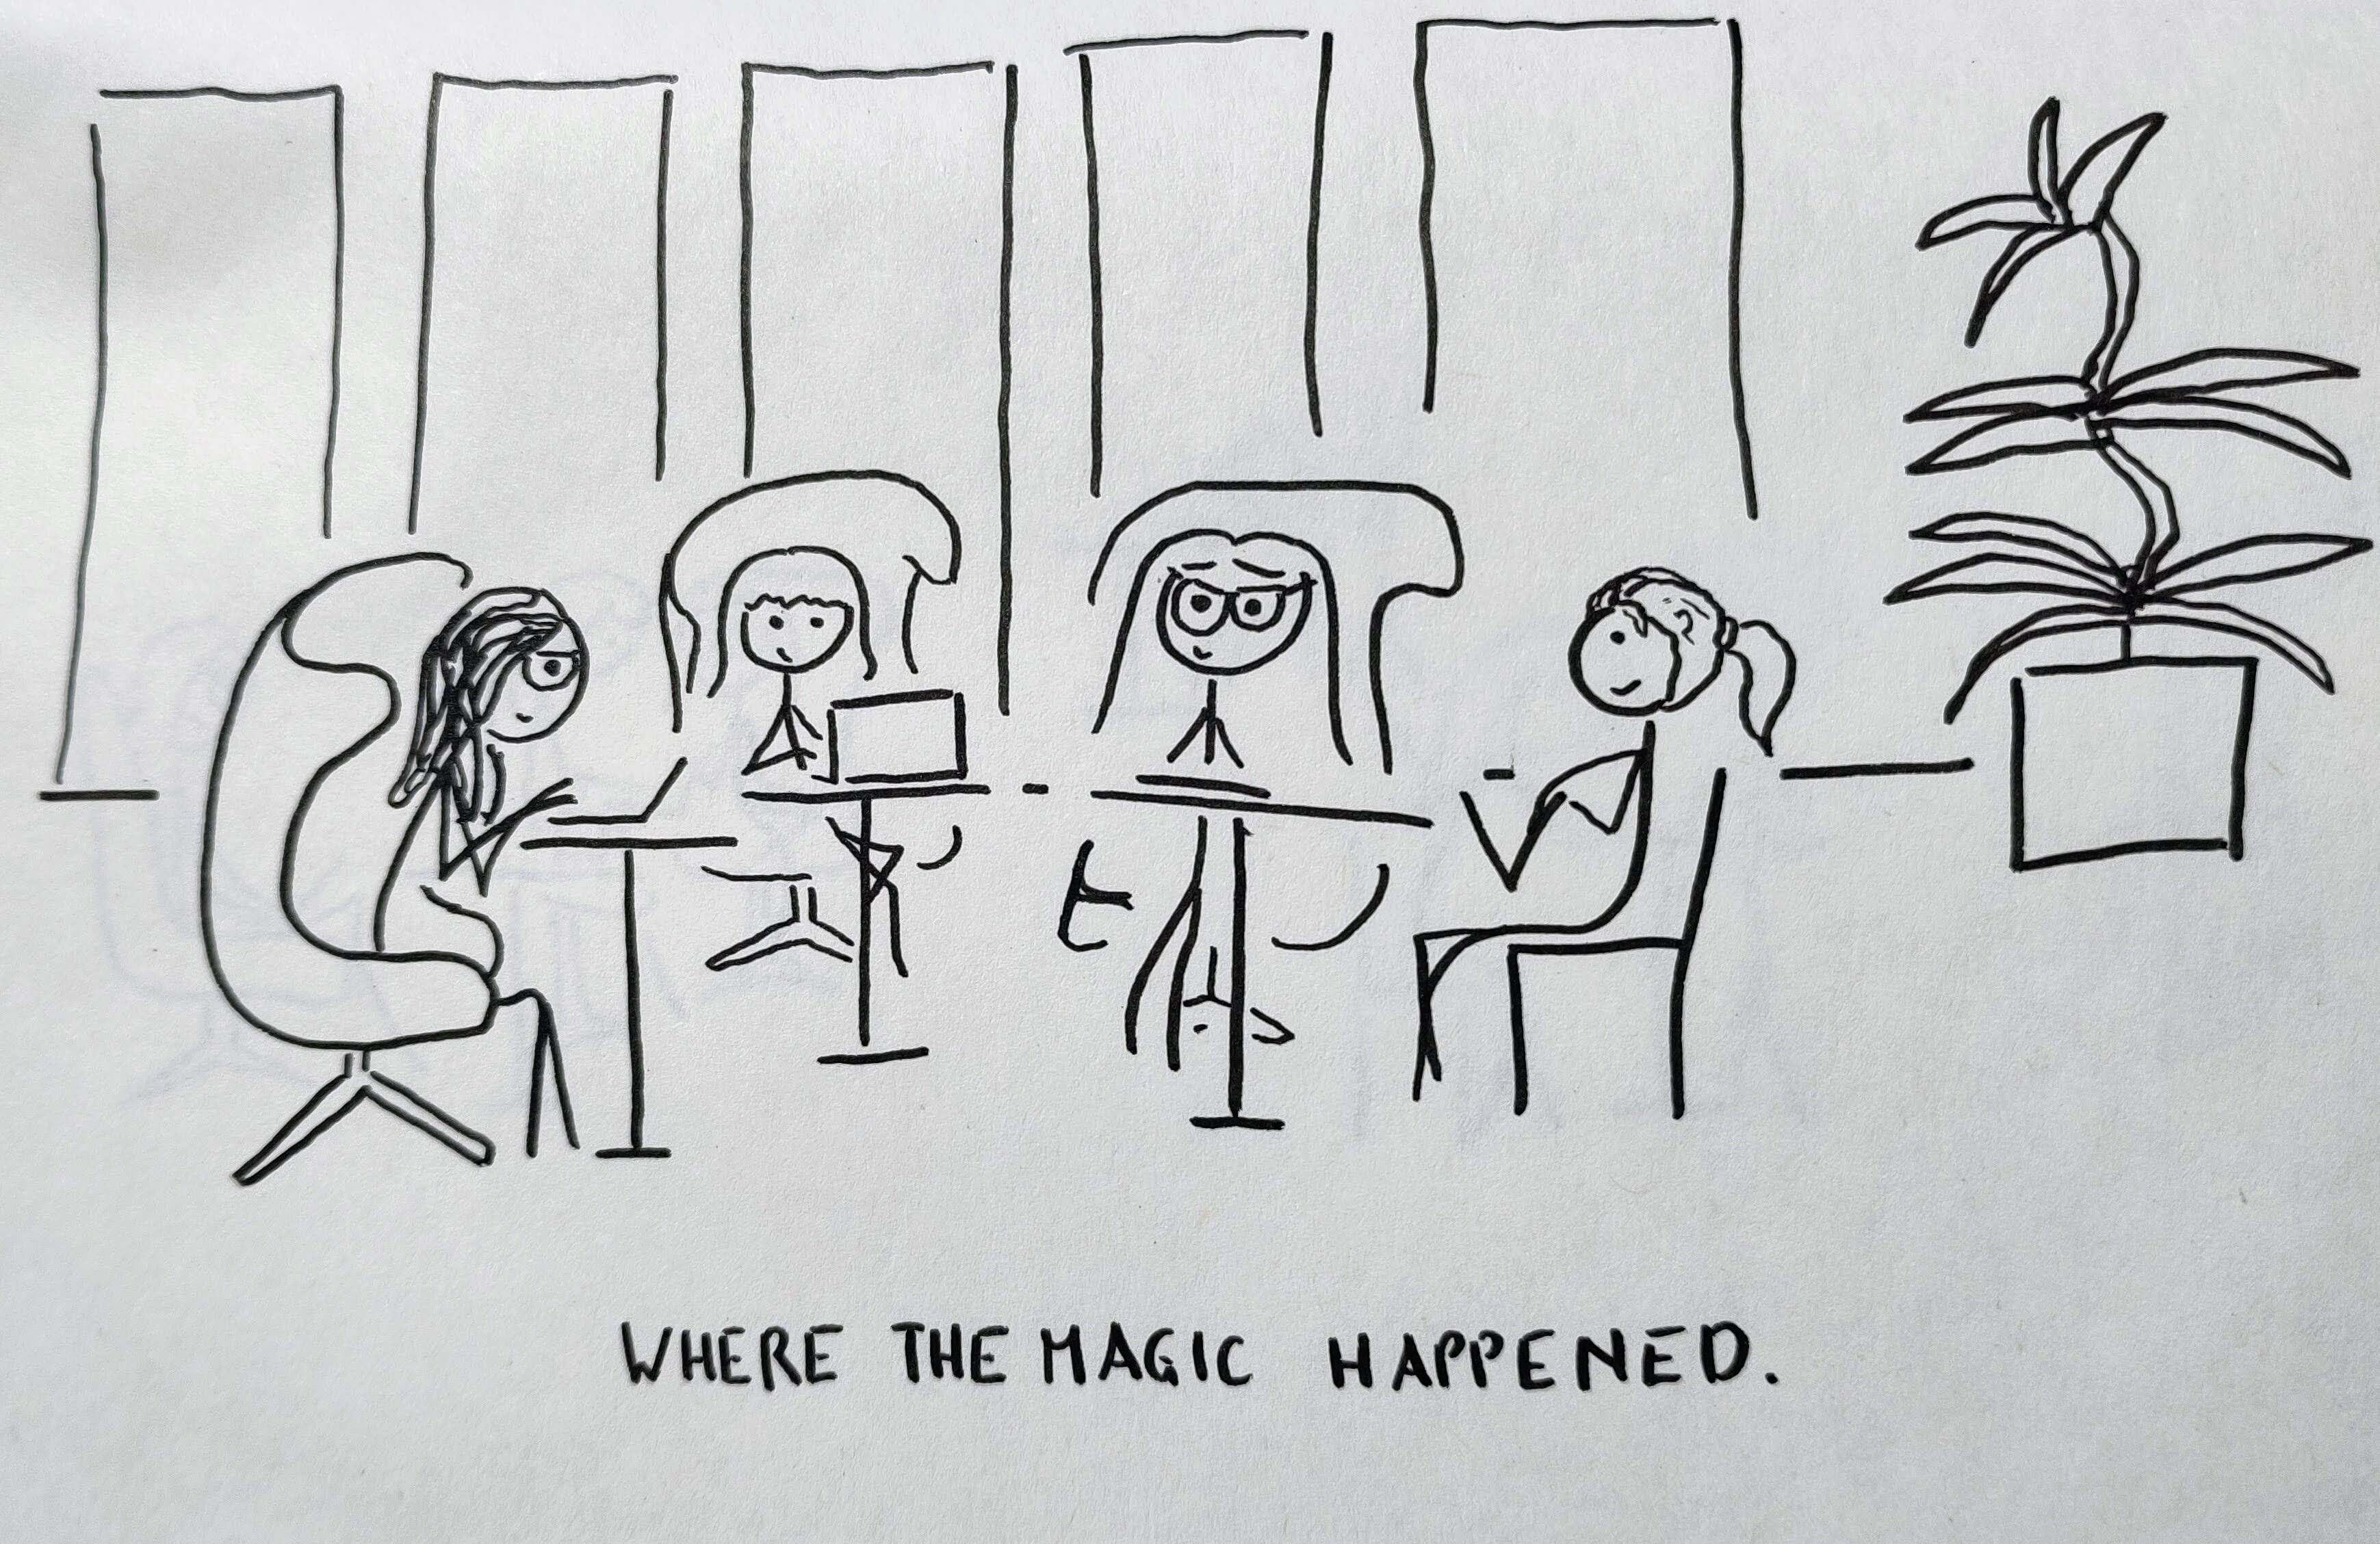 WHERE THE MAGIC HAPPENED.